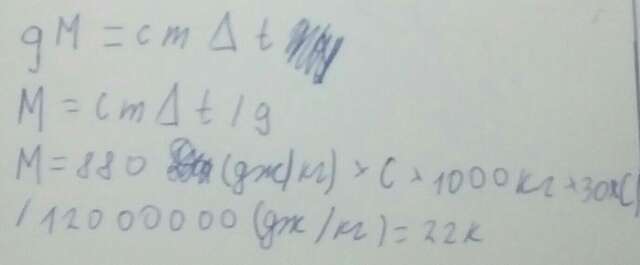 gM = cm Δ t
M = cm Δ t / g
M = 880 (дж/кг) × C × 1000 кг × 30×C)
/ 12000000 (дж/кг) = 22к